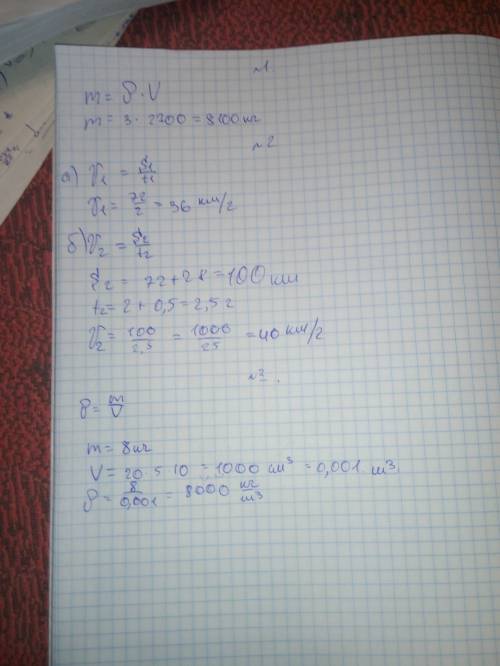 №1
m = ρ · V
m = 3 · 2700 = 8100 кг
№2
а) V₁ = S₁/t₁
V₁ = 72/2 = 36 км/г
б) V₂ = S₂/t₂
S₂ = 72 + 28 = 100 км
t₂ = 2 + 0,5 = 2,5 г
V₂ = 100/2,5 = 1000/25 = 40 км/г
№3.
ρ = m/V
m = 8 кг
V = 20 5 10 = 1000 см³ = 0,001 м³
ρ = 8/0,001 = 8000 кг/м³